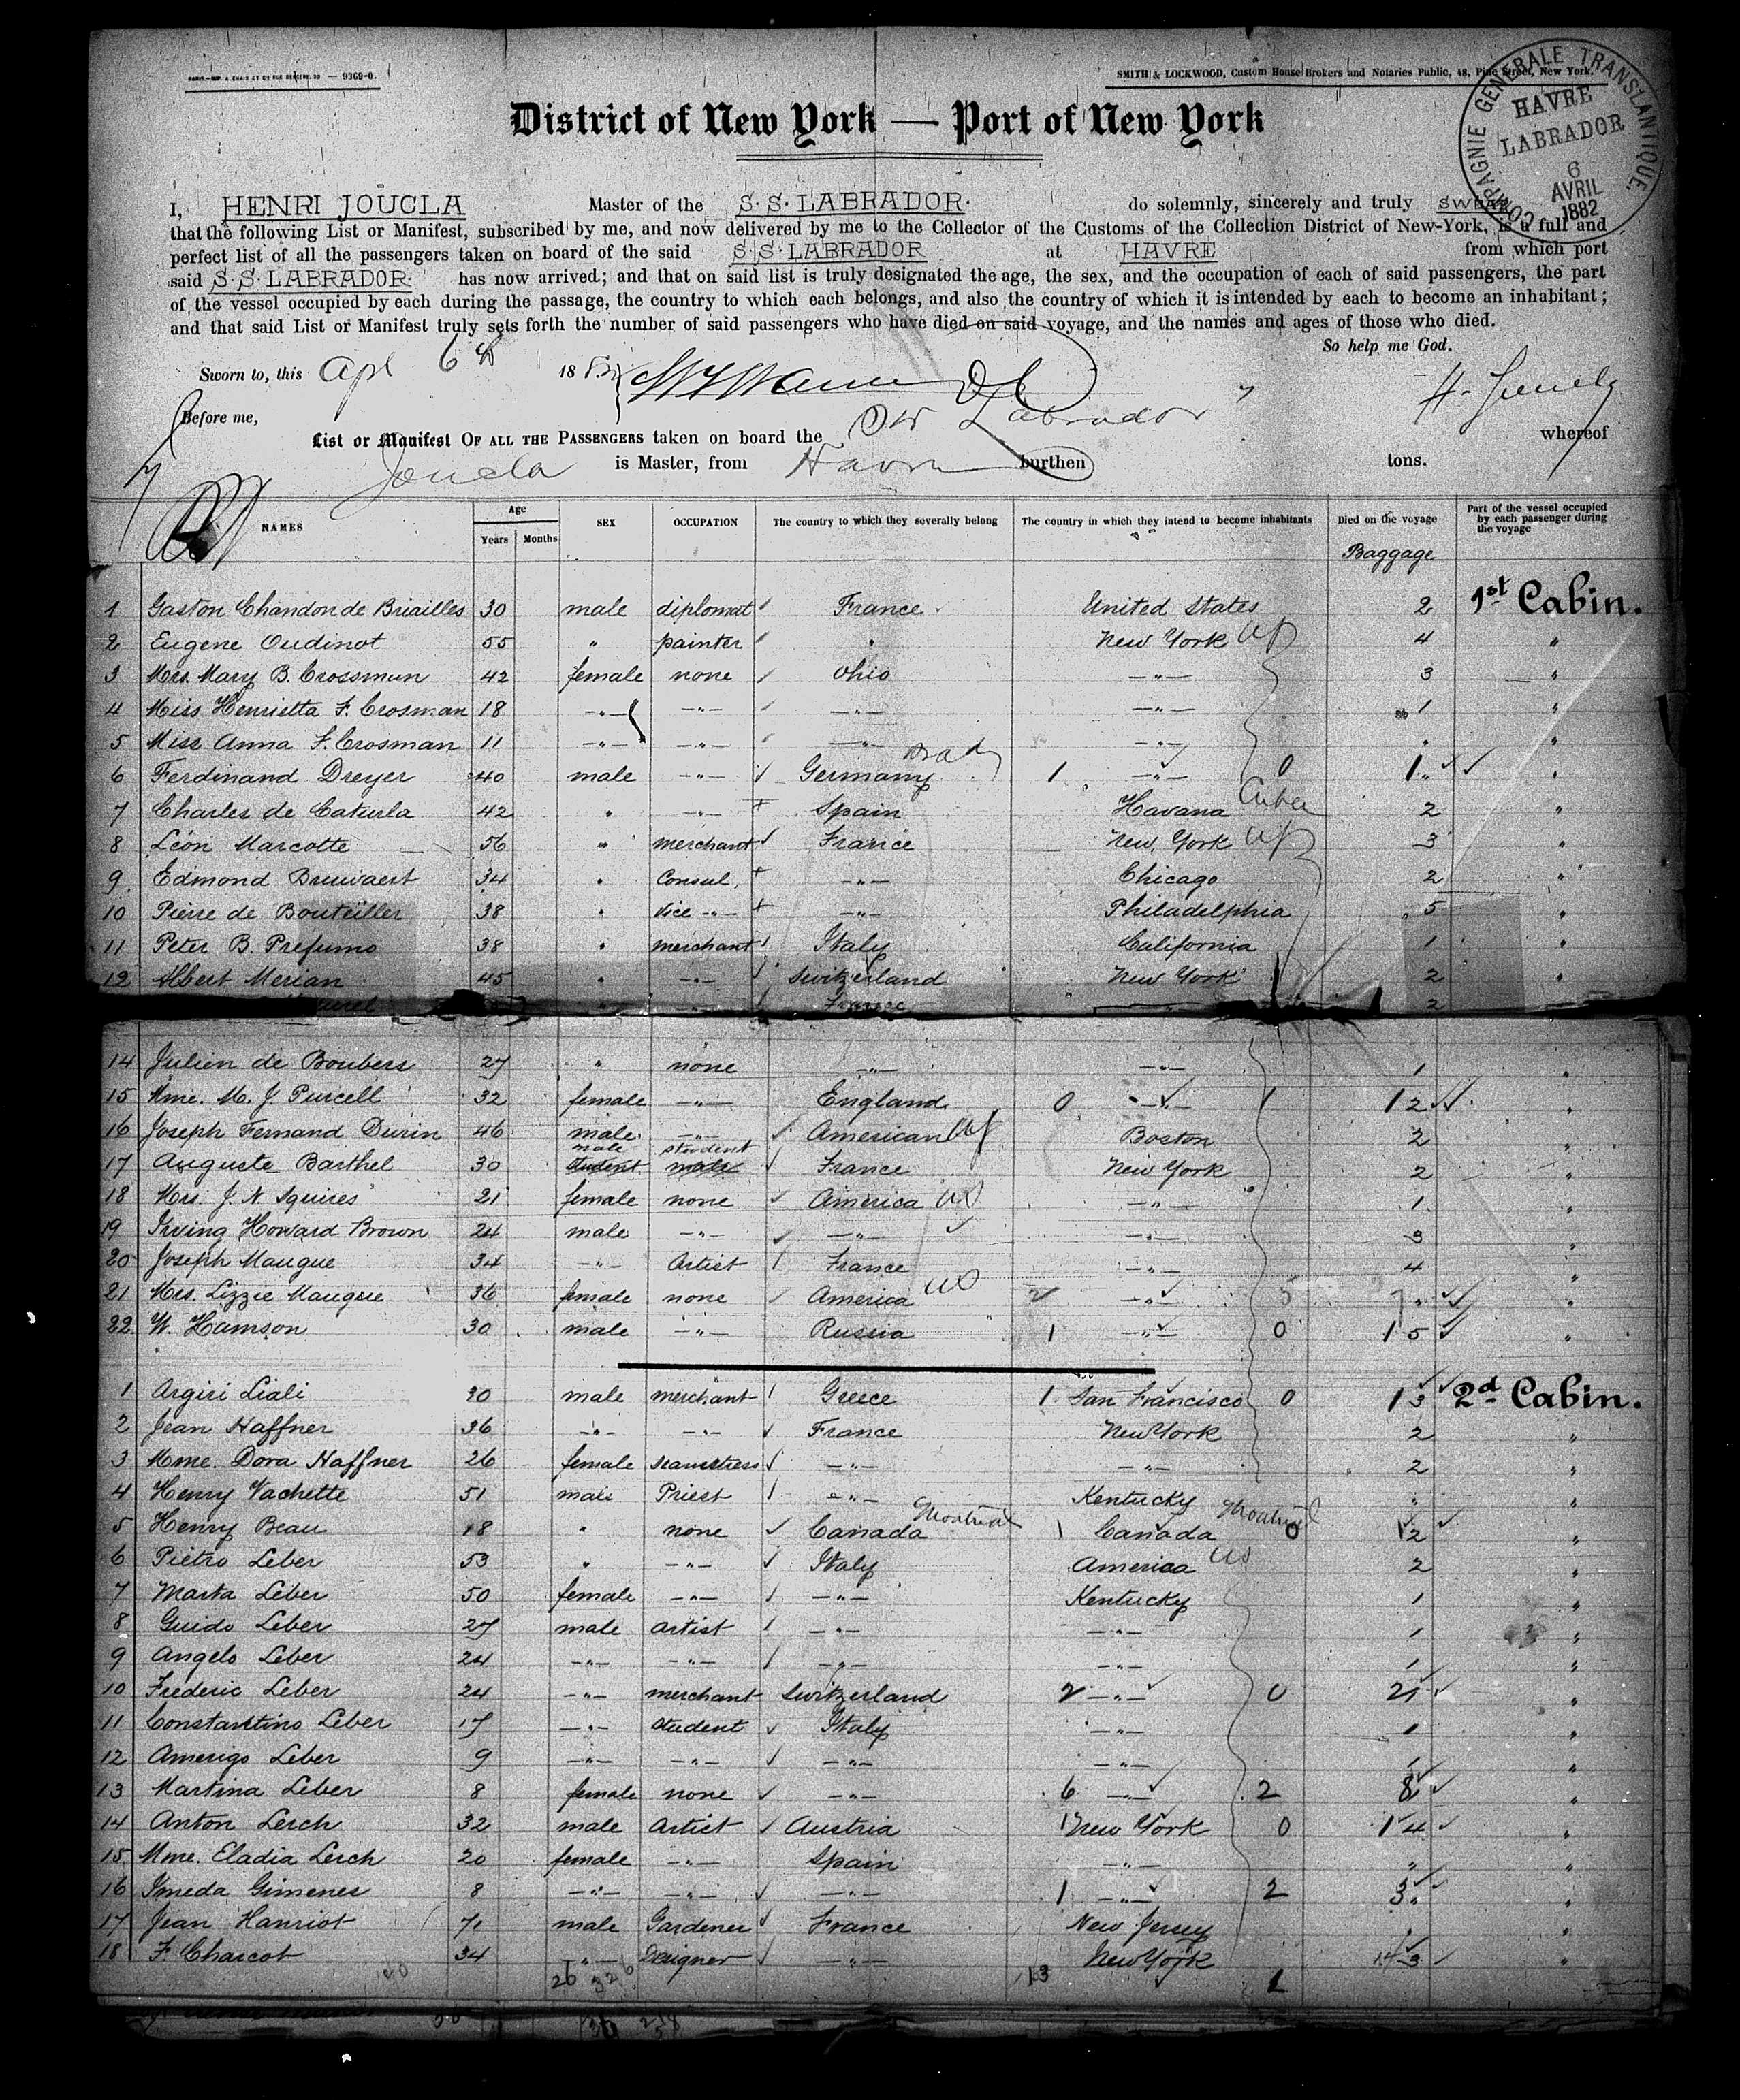 PARIS.—IMP. A. CHAIX ET Cie RUE BERGÈRE, 20 — 9369-0.
SMITH & LOCKWOOD, Custom House Brokers and Notaries Public, 48, Pine Street, New York.
COMPAGNIE GENERALE TRANSLANTIQUE.
HAVRE
LABRADOR
6
AVRIL
1882
District of New York — Port of New York
I, HENRI JOUCLA Master of the S.S. LABRADOR. do solemnly, sincerely and truly SWEAR
that the following List or Manifest, subscribed by me, and now delivered by me to the Collector of the Customs of the Collection District of New-York, is a full and
perfect list of all the passengers taken on board of the said S.S. LABRADOR at HAVRE from which port
said S.S. LABRADOR. has now arrived; and that on said list is truly designated the age, the sex, and the occupation of each of said passengers, the part
of the vessel occupied by each during the passage, the country to which each belongs, and also the country of which it is intended by each to become an inhabitant;
and that said List or Manifest truly sets forth the number of said passengers who have died on said voyage, and the names and ages of those who died.
So help me God.
Sworn to, this Apl 6th 1882
H. Joucla
Before me,
List or Manifest OF ALL THE PASSENGERS taken on board the SS Labrador whereof
Joucla is Master, from Havre burthen tons.
NAMES Age Years Months SEX OCCUPATION The country to which they severally belong The country in which they intend to become inhabitants Died on the voyage Part of the vessel occupied by each passenger during the voyage
Baggage
1 Gaston Chandon de Briailles 30 male diplomat France United States 2 1st Cabin.
2 Eugene Oudinot 55 " painter " New York 4 "
3 Mrs. Mary B. Crossman 42 female none Ohio —"— 3 "
4 Miss Henrietta F. Crosman 18 —"— —"— —"— —"— 1 "
5 Miss Anna F. Crosman 11 —"— —"— —"— —"— " "
6 Ferdinand Dreyer 40 male —"— Germany 1 —"— 0 1 " "
7 Charles de Caturla 42 " —"— Spain Havana Cuba 2 "
8 Léon Marcotte 56 " merchant France New York 3 "
9 Edmond Bruwaert 34 " Consul, —"— Chicago 2 "
10 Pierre de Bouteiller 38 " Vice —"— —"— Philadelphia 5 "
11 Peter B. Prefumo 38 " merchant Italy California 1 "
12 Albert Merian 45 " —"— Switzerland New York 2 "
" —"— France 2
14 Julien de Boubers 27 " none —"— —"— 1 "
15 Mme. M. J. Purcell 32 female —"— England 0 —"— 1 1 2 "
16 Joseph Fernand Durin 46 male —"— American Boston 2 "
male student
17 Auguste Barthel 30 student male France New York 2 "
18 Mrs. J. N. Squires 21 female none America US —"— 1 "
19 Irving Howard Brown 24 male —"— —"— —"— 3 "
20 Joseph Maugue 34 —"— Artist France —"— 4 "
21 Mrs. Lizzie Maugue 36 female none America US 2 —"— 5 7 " "
22 W. Hamson 30 male —"— Russia 1 —"— 0 1 5 "
1 Argiri Liali 30 male merchant Greece 1 San Francisco 0 1 3 2d Cabin.
2 Jean Haffner 36 —"— —"— France New York 2 "
3 Mme. Dora Haffner 26 female seamstress —"— —"— 2 "
4 Henry Vachette 51 male Priest —"— Kentucky " "
5 Henry Beau 18 " none Canada Montreal 1 Canada Montreal 0 1 2 "
6 Pietro Leber 53 " —"— Italy America US 2 "
7 Marta Leber 50 female —"— —"— Kentucky 1 "
8 Guido Leber 27 male artist —"— —"— 1 "
9 Angelo Leber 24 —"— —"— —"— —"— 1 "
10 Frederic Leber 24 —"— merchant Switzerland 2 —"— 0 2 1 "
11 Constantino Leber 17 —"— student Italy —"— 1 "
12 Amerigo Leber 9 —"— —"— —"— —"— 1 "
13 Martina Leber 8 female none —"— 6 —"— 2 8 "
14 Anton Lerch 32 male Artist Austria 1 New York 0 1 4 "
15 Mme. Eladia Lerch 20 female —"— Spain —"— " "
16 Imeda Gimenes 8 —"— —"— —"— 1 —"— 2 3 "
17 Jean Hanriot 71 male Gardener France New Jersey " "
18 F. Charcot 34 —"— Designer —"— New York 3 "
26 326 13 1